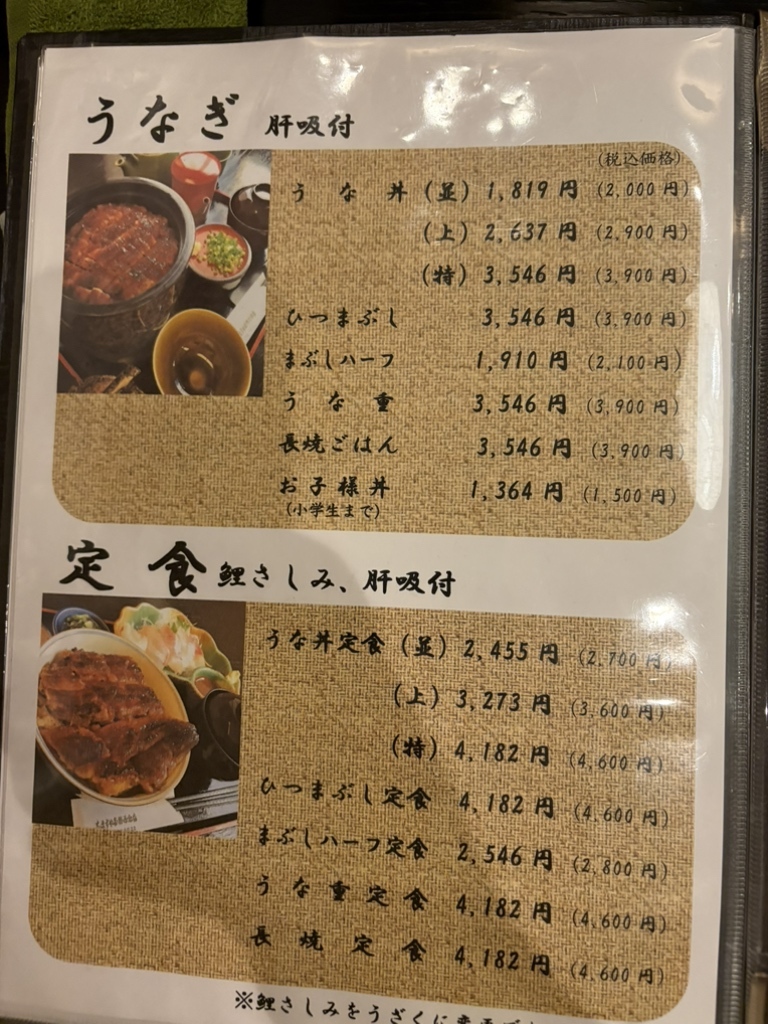 うなぎ 肝吸付
(税込価格)
うな丼 (並) 1,819円 (2,000円)
(上) 2,637円 (2,900円)
(特) 3,546円 (3,900円)
ひつまぶし 3,546円 (3,900円)
まぶしハーフ 1,910円 (2,100円)
うな重 3,546円 (3,900円)
長焼ごはん 3,546円 (3,900円)
お子様丼 1,364円 (1,500円)
(小学生まで)
定食 鯉さしみ、肝吸付
うな丼定食 (並) 2,455円 (2,700円)
(上) 3,273円 (3,600円)
(特) 4,182円 (4,600円)
ひつまぶし定食 4,182円 (4,600円)
まぶしハーフ定食 2,546円 (2,800円)
うな重定食 4,182円 (4,600円)
長焼定食 4,182円 (4,600円)
※鯉さしみをうざくに